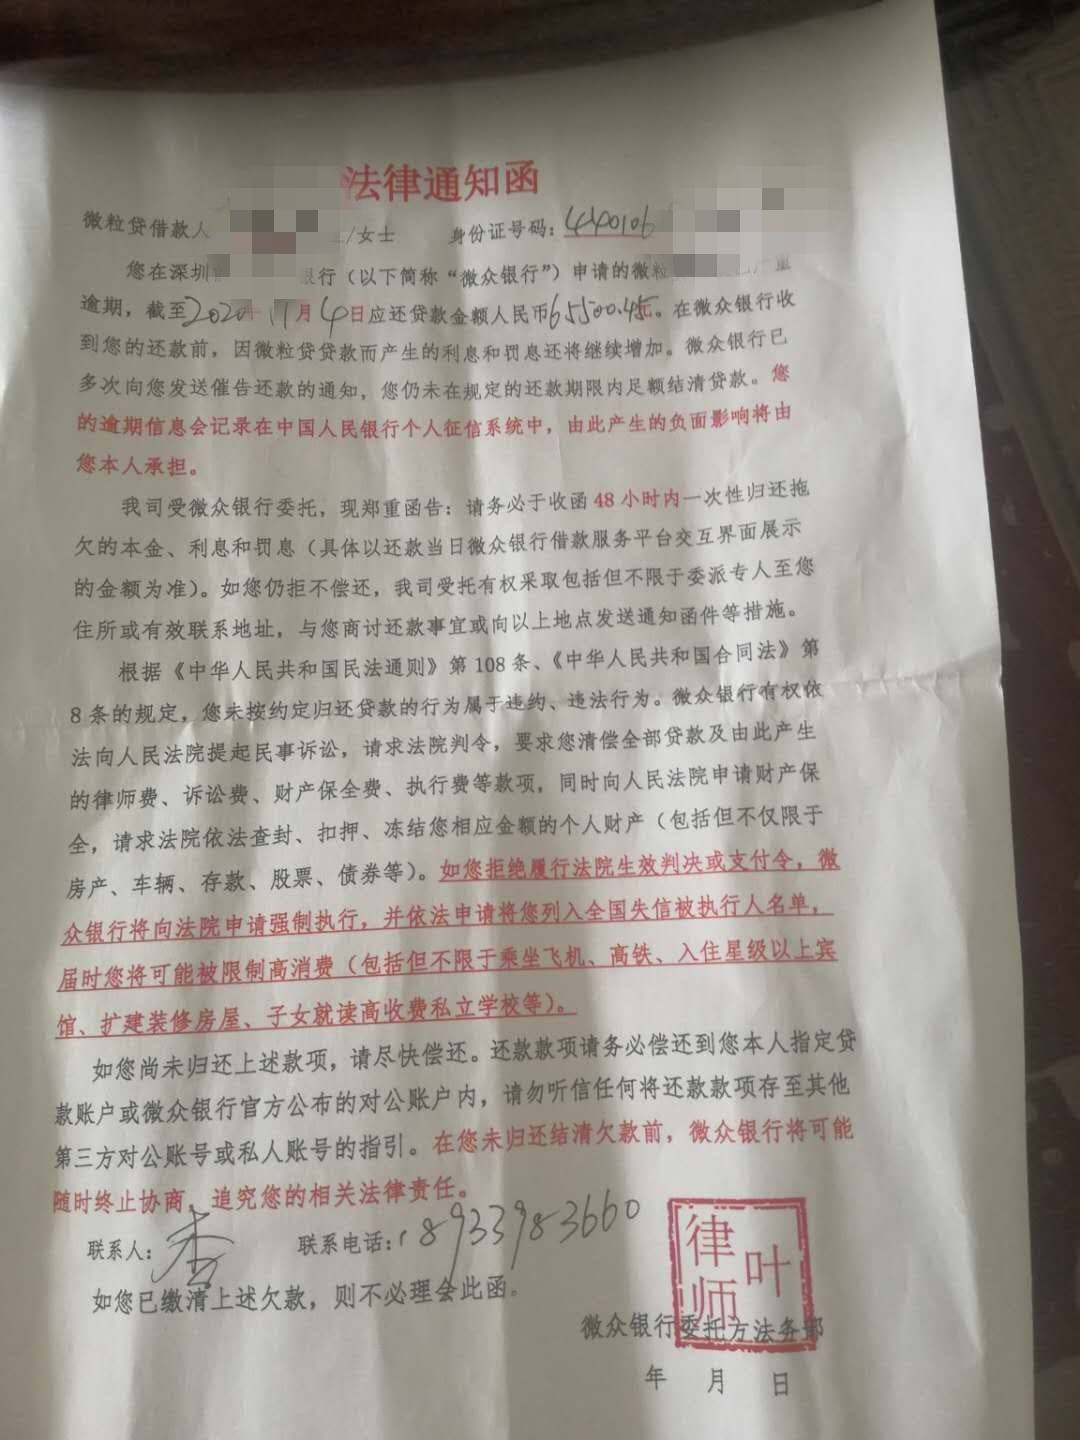 法律通知函
微粒贷借款人 /女士 身份证号码：440106
您在深圳 银行（以下简称“微众银行”）申请的微粒 严重
逾期，截至2020年11月4日应还贷款金额人民币65500.45元。在微众银行收
到您的还款前，因微粒贷贷款而产生的利息和罚息还将继续增加。微众银行已
多次向您发送催告还款的通知，您仍未在规定的还款期限内足额结清贷款。您
的逾期信息会记录在中国人民银行个人征信系统中，由此产生的负面影响将由
您本人承担。
我司受微众银行委托，现郑重函告：请务必于收函48小时内一次性归还拖
欠的本金、利息和罚息（具体以还款当日微众银行借款服务平台交互界面展示
的金额为准）。如您仍拒不偿还，我司受托有权采取包括但不限于委派专人至您
住所或有效联系地址，与您商讨还款事宜或向以上地点发送通知函件等措施。
根据《中华人民共和国民法通则》第108条、《中华人民共和国合同法》第
8条的规定，您未按约定归还贷款的行为属于违约、违法行为。微众银行有权依
法向人民法院提起民事诉讼，请求法院判令，要求您清偿全部贷款及由此产生
的律师费、诉讼费、财产保全费、执行费等款项，同时向人民法院申请财产保
全，请求法院依法查封、扣押、冻结您相应金额的个人财产（包括但不仅限于
房产、车辆、存款、股票、债券等）。如您拒绝履行法院生效判决或支付令，微
众银行将向法院申请强制执行，并依法申请将您列入全国失信被执行人名单，
届时您将可能被限制高消费（包括但不限于乘坐飞机、高铁、入住星级以上宾
馆、扩建装修房屋、子女就读高收费私立学校等）。
如您尚未归还上述款项，请尽快偿还。还款款项请务必偿还到您本人指定贷
款账户或微众银行官方公布的对公账户内，请勿听信任何将还款款项存至其他
第三方对公账号或私人账号的指引。在您未归还结清欠款前，微众银行将可能
随时终止协商，追究您的相关法律责任。
联系人： 联系电话：18933983660
如您已缴清上述欠款，则不必理会此函。
律师叶
微众银行委托方法务部
年 月 日